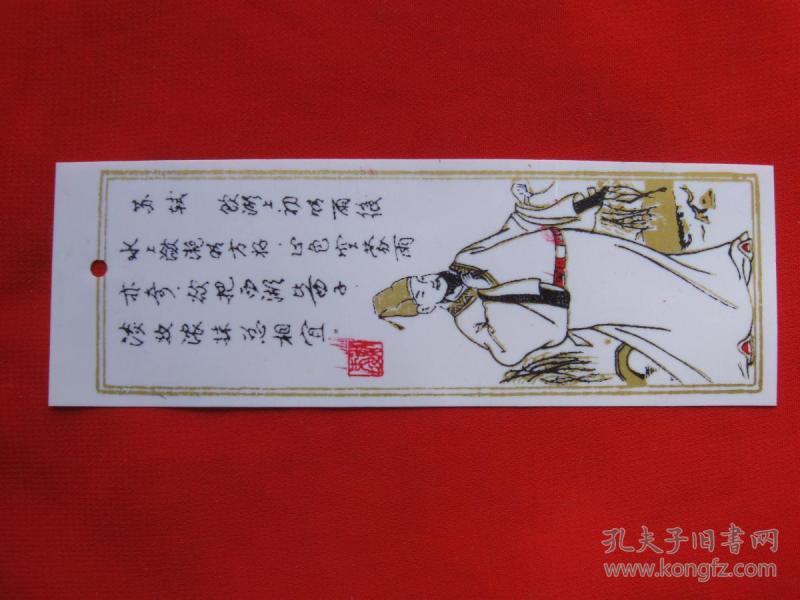 苏轼 饮湖上初晴雨後
水上潋滟晴方好.山色空蒙雨
亦奇.欲把西湖比西子.
淡妆浓抹总相宜。
孔夫子旧书网
www.kongfz.com